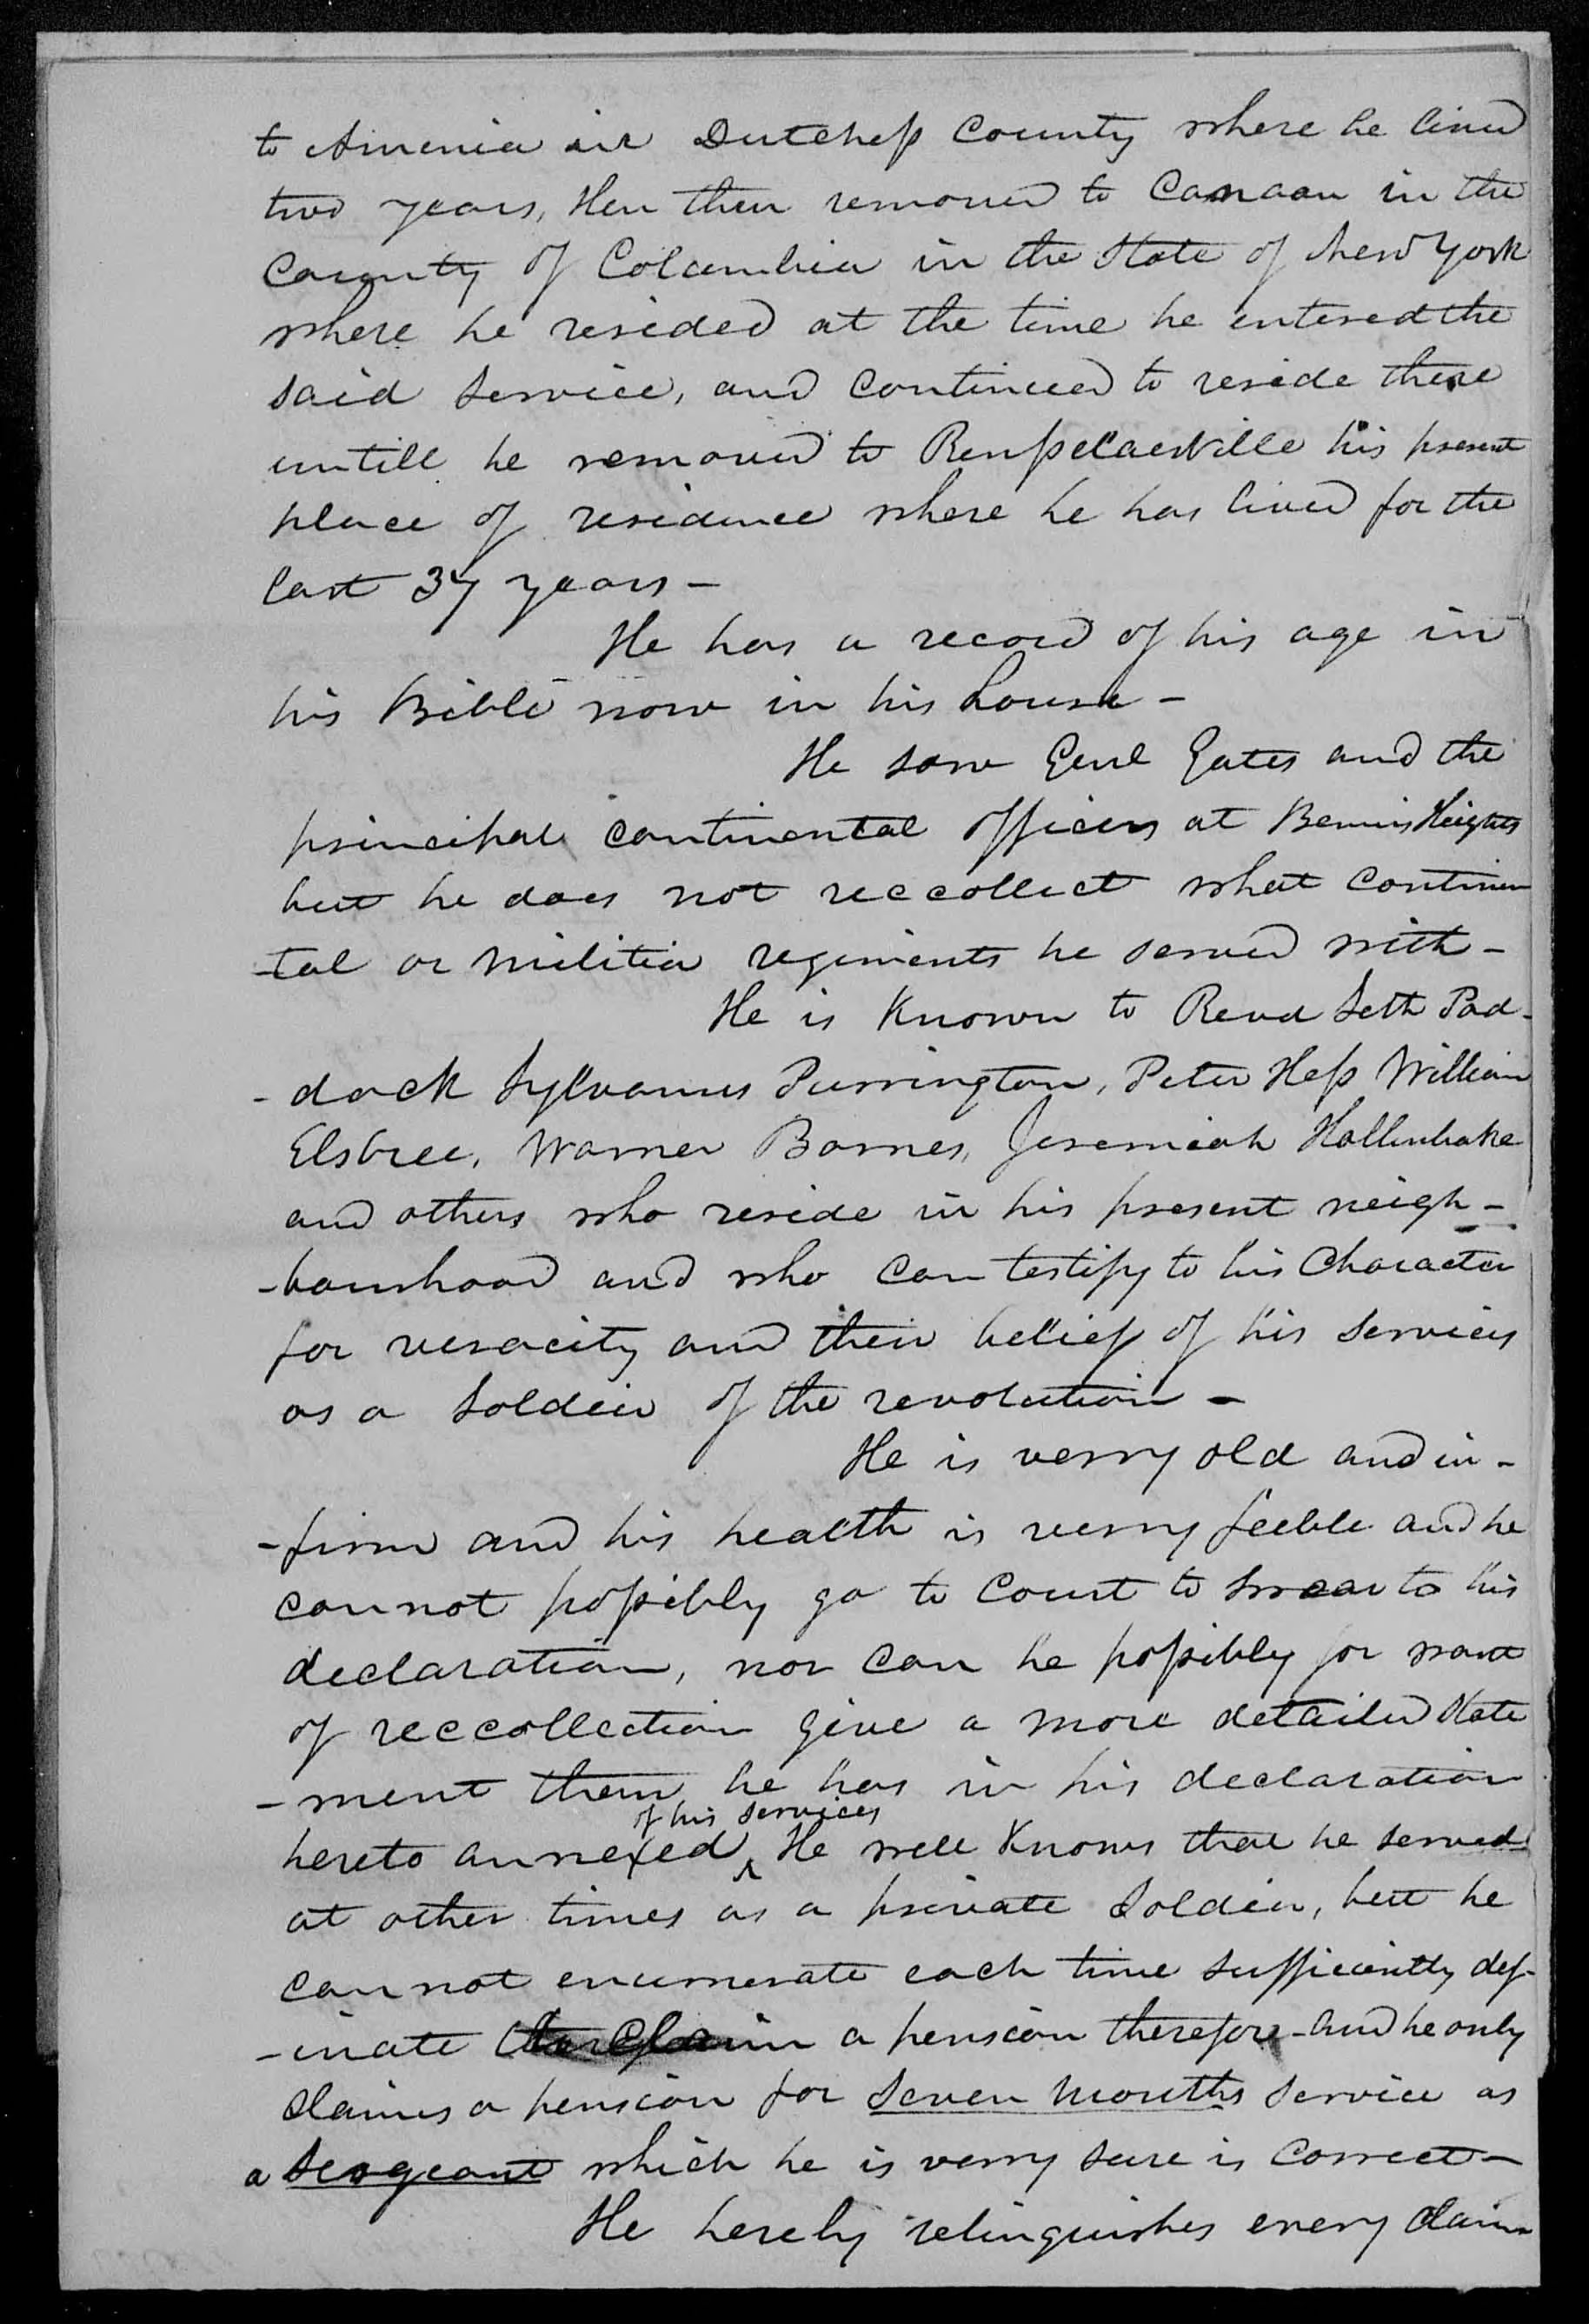 to Amenia in Dutchess County where he lived
two years, Hen then removed to Canaan in the
County of Columbia in the State of New York
where he resided at the time he entered the
said service, and continued to reside there
untill he removed to Rensselaerville his present
place of residence where he has lived for the
last 37 years -
He has a record of his age in
his Bible now in his house -
He saw Genl Gates and the
principal continental officers at Bemis Heights
but he does not reccollect what continen
-tal or militia regiments he served with -
He is Known to Revd Seth Pad-
-dock Sylvanus Purrington, Peter Hess William
Elsbree, Warner Barnes, Jeremiah Hallenbake
and others who reside in his present neigh-
-bourhood and who can testify to his Character
for veracity and their belief of his services
as a Soldier of the revolution -
He is verry old and in-
-firm and his health is verry feeble and he
cannot possibly go to Court to swear to his
declaration, nor can he possibly for want
of reccollection give a more detailed State
-ment than he has in his declaration
of his services
hereto annexed ‸ He well Knows that he served
at other times as a private Soldier, but he
cannot enumerate each time sufficiently def-
-inate to claim a pension therefore - and he only
claims a pension for seven months service as
a Sergeant which he is verry sure is correct -
He hereby relinquishes every claim